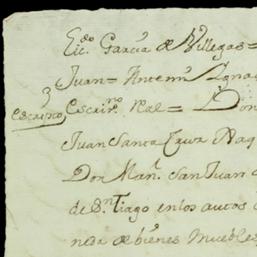 Licdo. Garcia de Villegas =
Juan = Antemi Ygna
Escrivno. Real = Don
Juan Santa Cruz
Don Manl. San Juan
de Sn. Tiago en los autos
neda de bienes Mueble